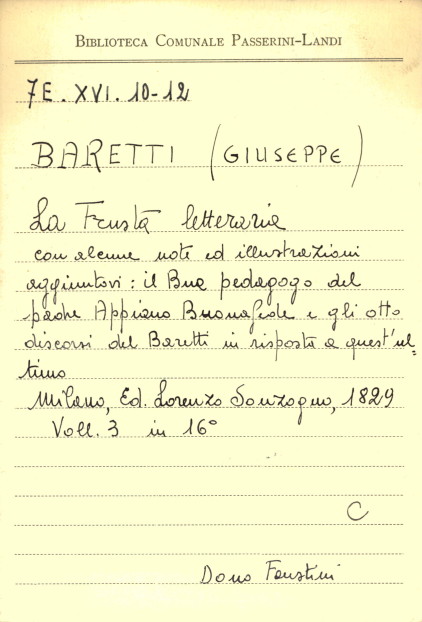 BIBLIOTECA COMUNALE PASSERINI-LANDI
7E. XVI. 10-12
BARETTI (GIUSEPPE)
La Frusta letteraria
con alcune note ed illustrazioni
aggiuntovi: il Bue pedagogo del
padre Appiano Buonafede e gli otto
discorsi del Baretti in risposta a quest'ul=
timo
Milano, Ed. Lorenzo Sonzogno, 1829
Voll. 3 in 16°
C
Dono Faustini